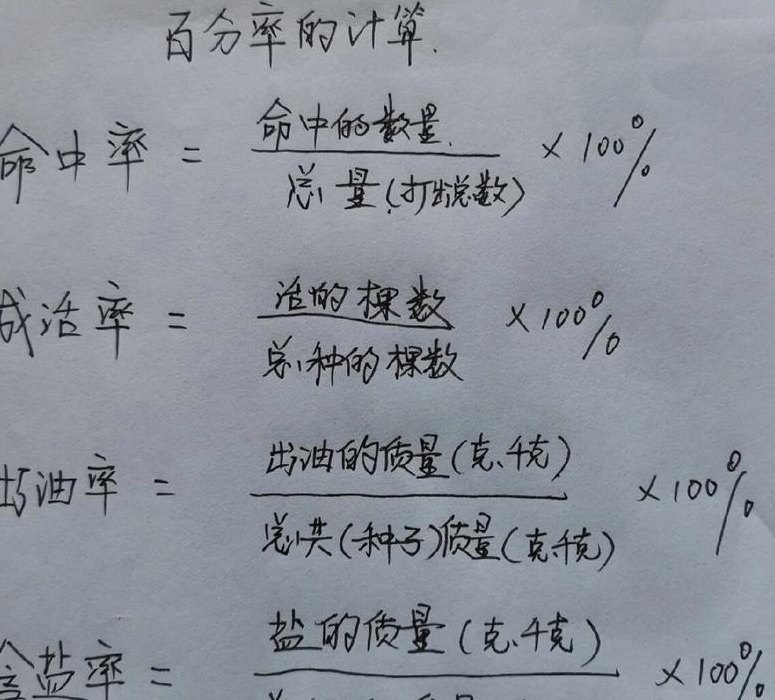 百分率的计算.
命中率 = 命中的数量. × 100%
总量(打出总数)
成活率 = 活的棵数 ×100%
总种的棵数
出油率 = 出油的质量(克、千克) ×100%
总共(种子)质量(克、千克)
含盐率 = 盐的质量(克、千克) ×100%